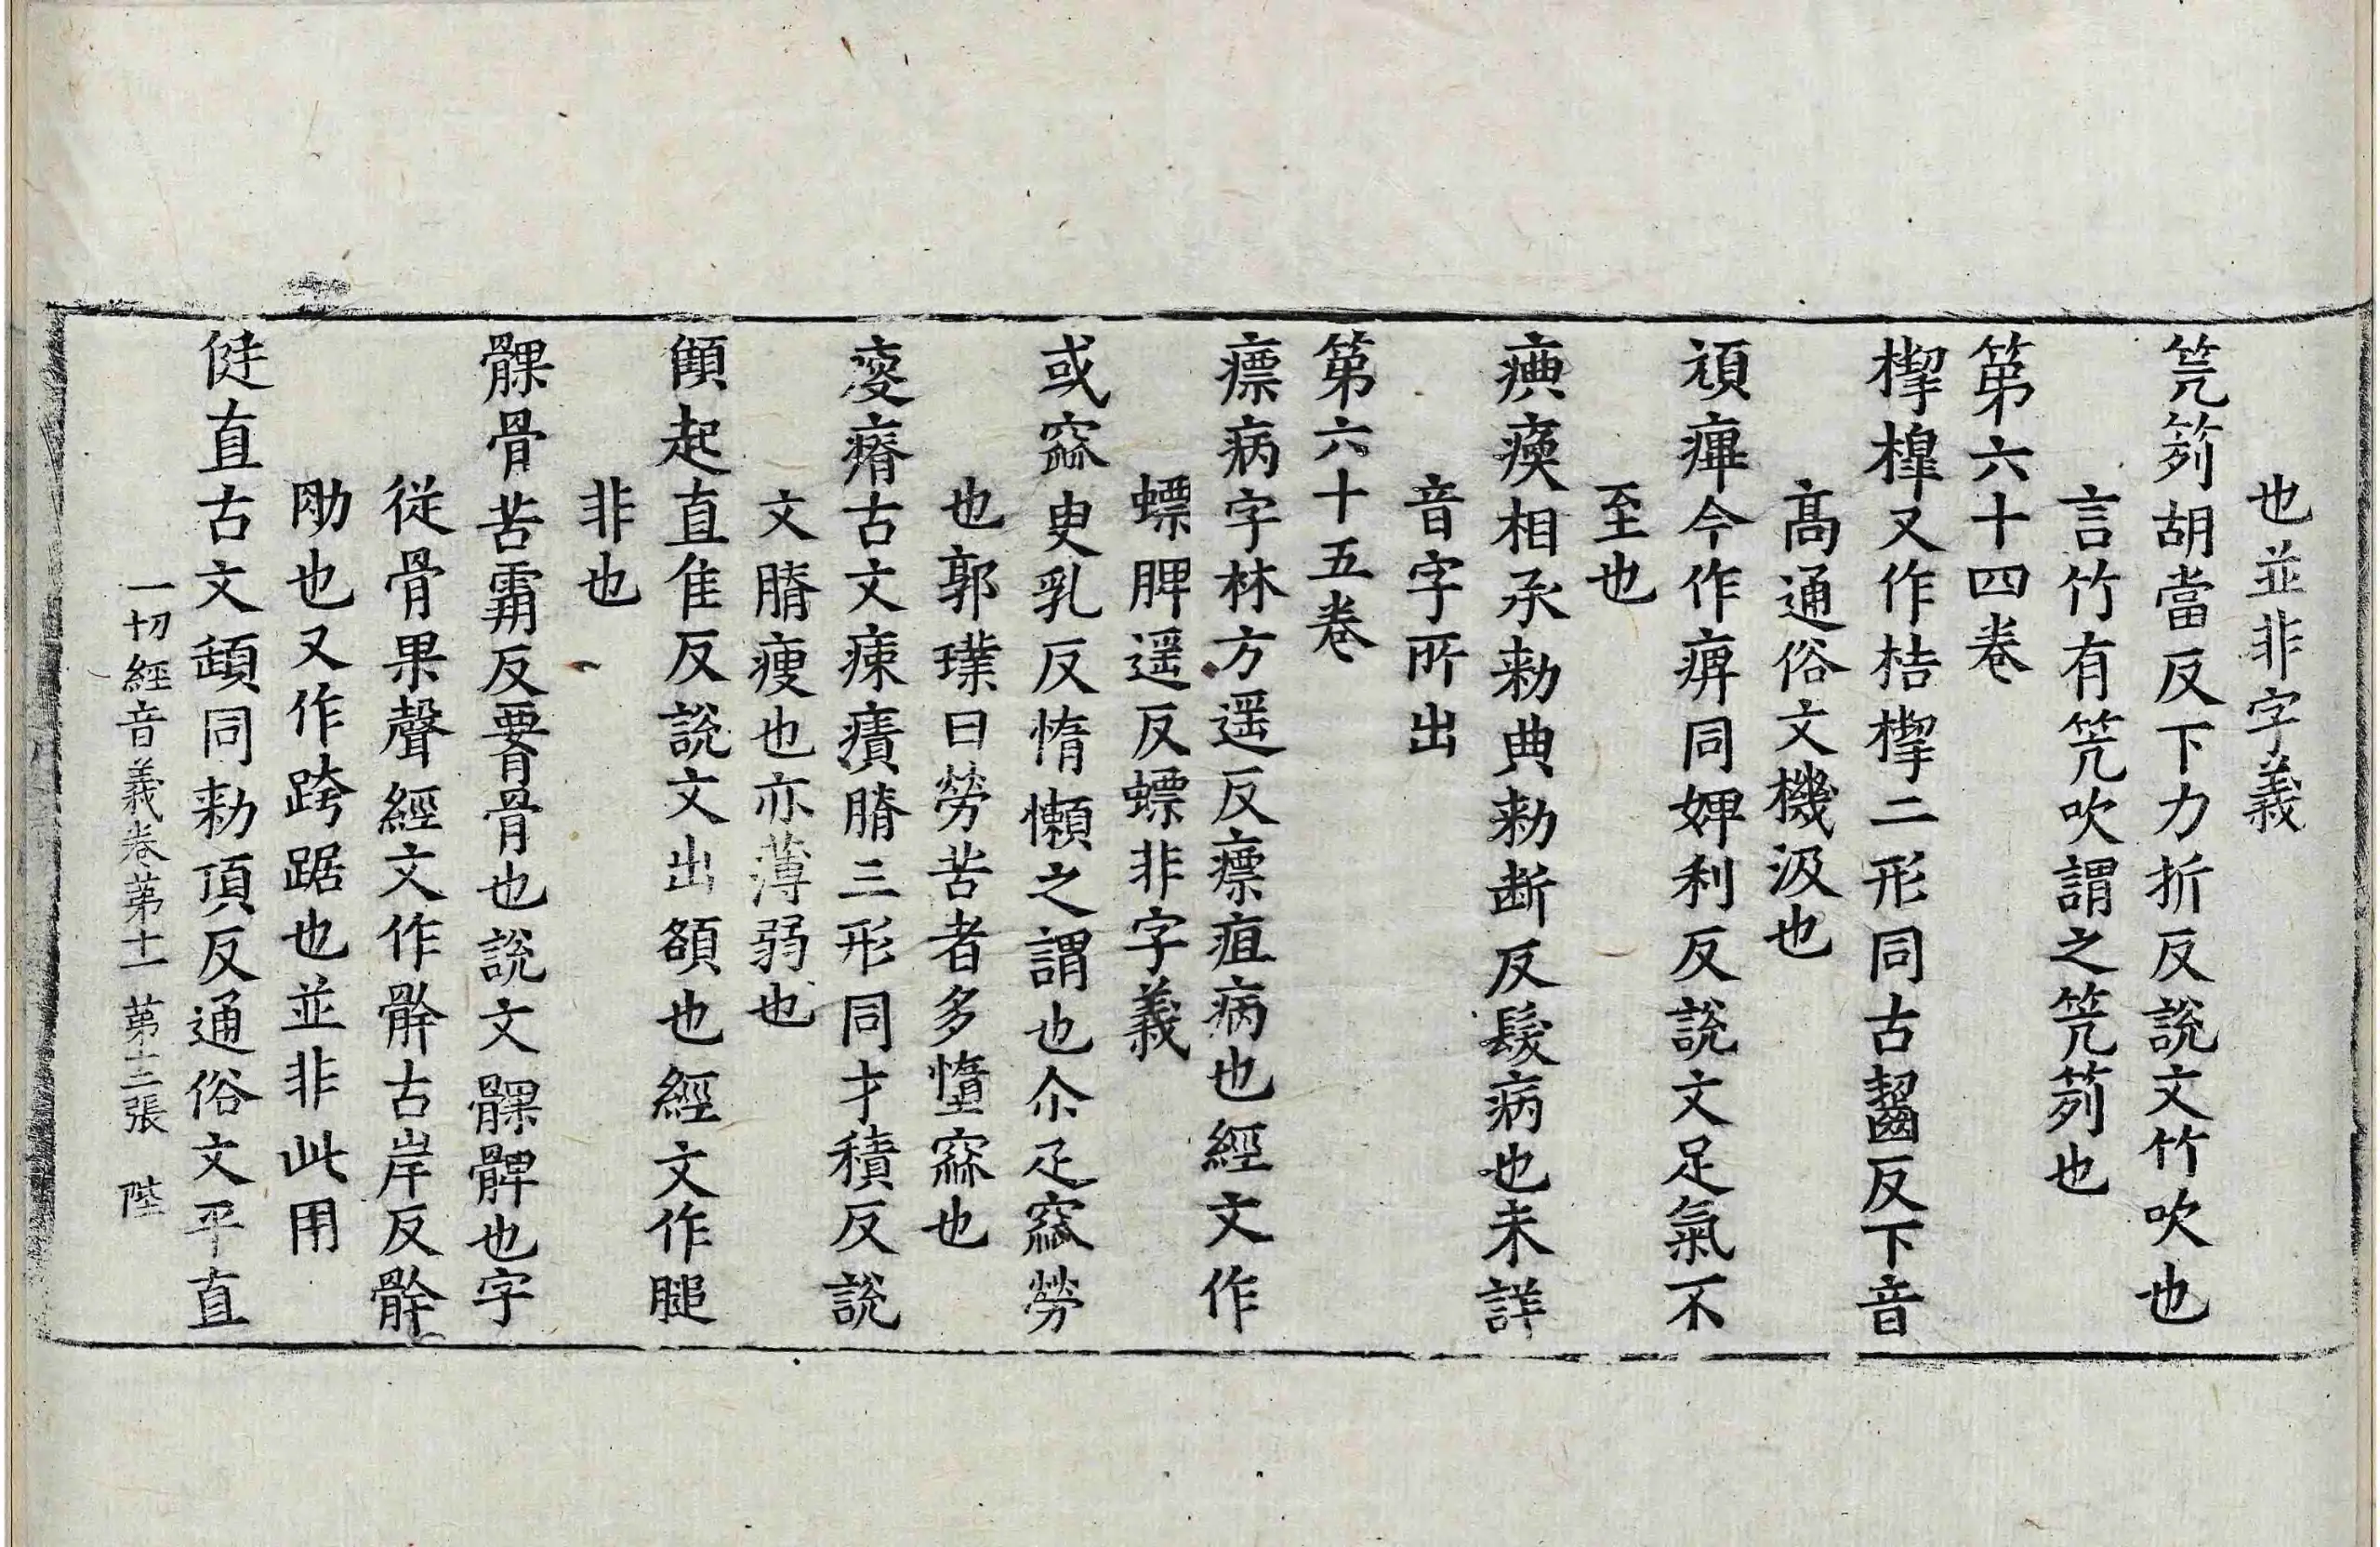 也並非字義
笐筣胡當反下力折反說文竹吹也
言竹有笐吹謂之笐筣也
第六十四卷
㮮槔又作桔㮮二形同古齧反下音
髙通俗文機汲也
頑痺今作痹同婢利反說文足氣不
至也
㾏瘓相承勑典勑断反𩬊病也未詳
音字所出
第六十五卷
瘭病字林方遥反瘭疽病也經文作
螵脾遥反螵非字義
或窳史乳反惰懶之謂也尒疋窳勞
也郭璞曰勞苦者多憧窳也
㾐瘠古文㾊㿉膌三形同才積反說
文膌瘦也亦薄弱也
顀起直隹反說文出額也經文作膇
非也
髁骨苦霸反䯒骨也說文髁髀也字
従骨果聲經文作骭古岸反骭
肋也又作跨踞也並非此用
侹直古文頲同勑頂反通俗文平直
一切經音義卷第十一 第十三張 陛